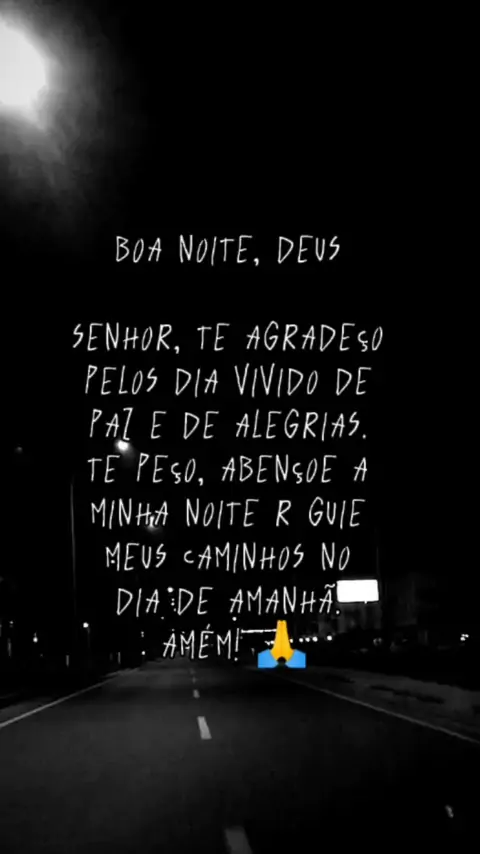 BOA NOITE, DEUS
SENHOR, TE AGRADEÇO
PELOS DIA VIVIDO DE
PAZ E DE ALEGRIAS.
TE PEÇO, ABENÇOE A
MINHA NOITE R GUIE
MEUS CAMINHOS NO
DIA DE AMANHÃ.
AMÉM! 🙏